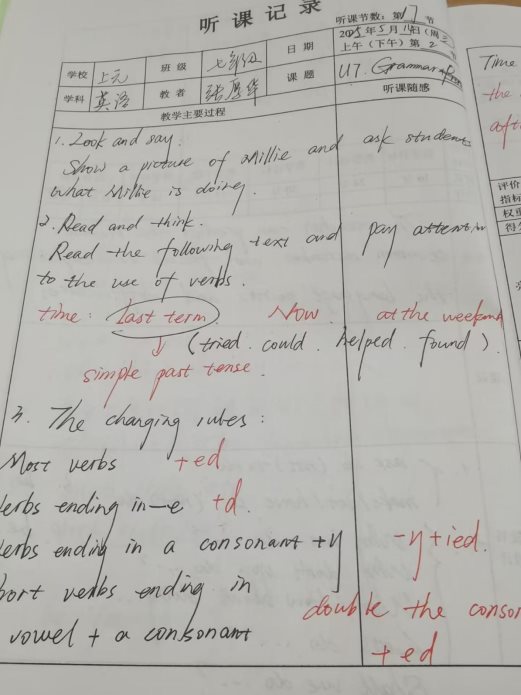 听课记录
听课节数:第17节
学校 上元 班级 七年级 日期 2025年5月14日(周三) 上午(下午)第2节
学科 英语 教者 课题 U7. Grammar
教学主要过程 听课随感
1. Look and say.
Show a picture of Millie and ask students
what Millie is doing.
2. Read and think.
Read the following text and pay attention
to the use of verbs.
time: last term. Now. at the weekend
(tried. could. helped. found).
simple past tense.
3. The changing rules:
Most verbs +ed
verbs ending in -e +d.
verbs ending in a consonant +y -y+ied.
short verbs ending in double the conson
vowel + a consonant +ed
Time
the
评价
指标